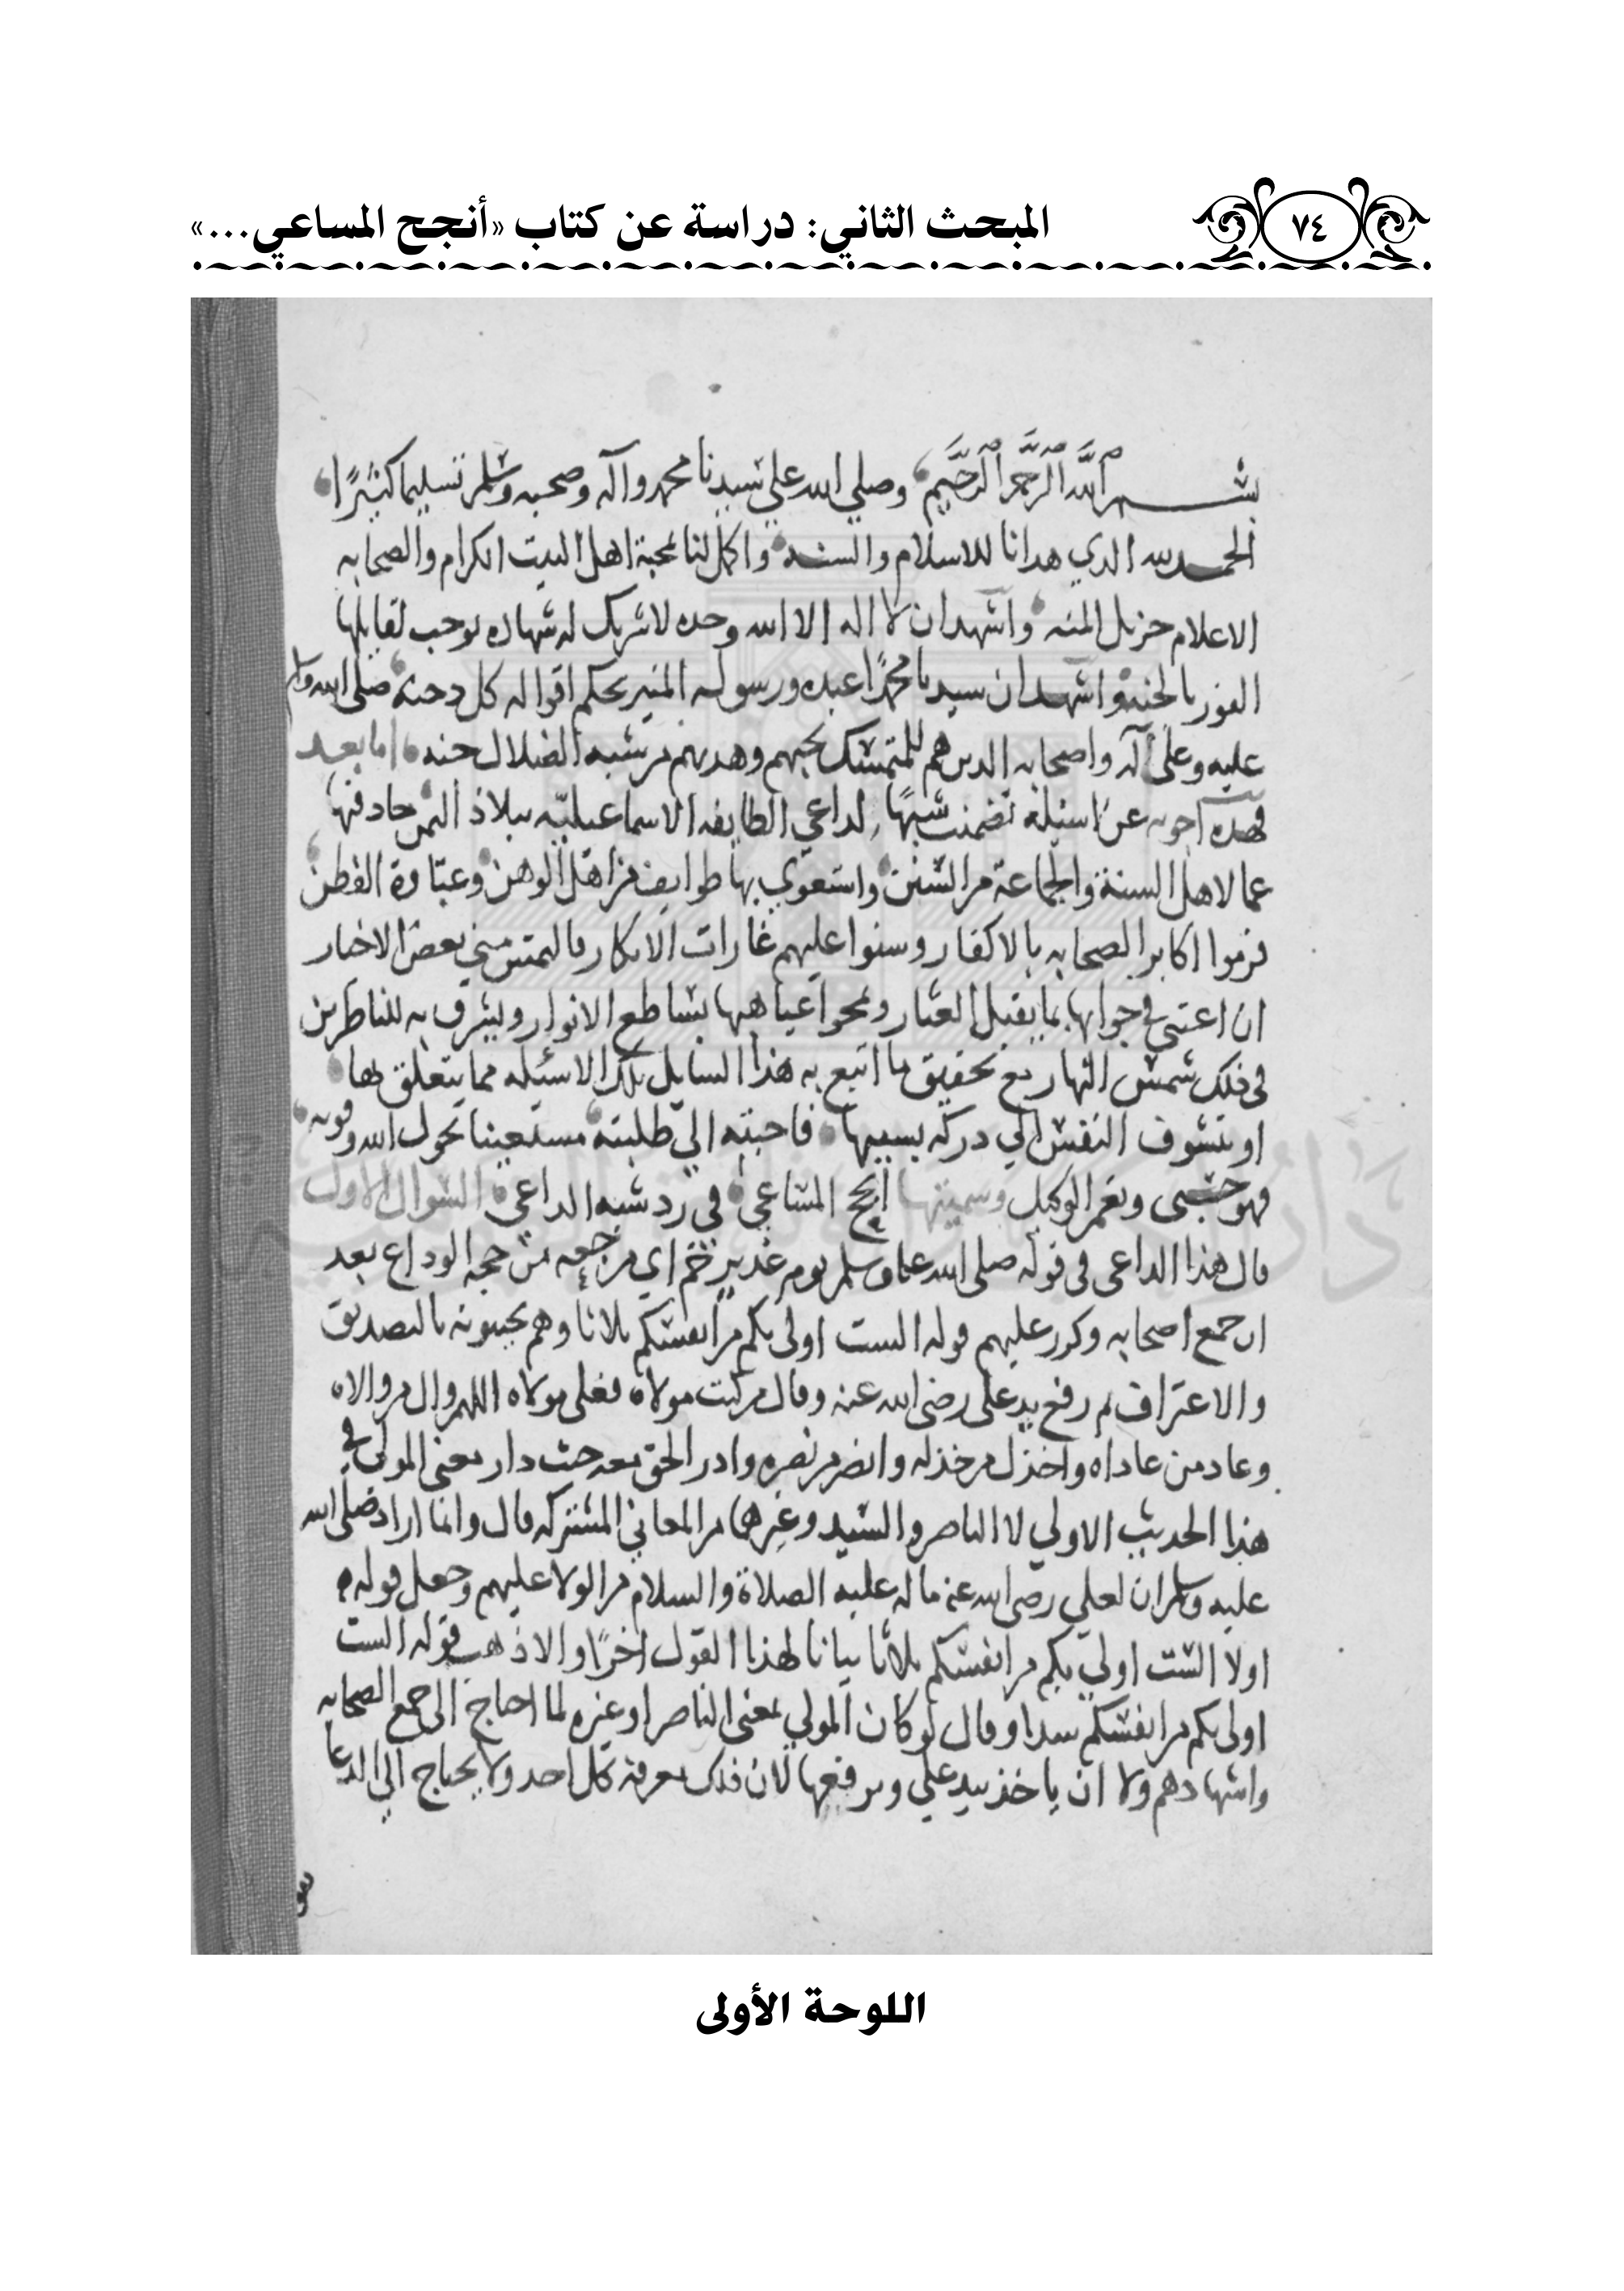 ٧٤
المبحث الثاني: دراسة عن كتاب «أنجح المساعي...»
بسم الله الرحمن الرحيم وصلى الله على سيدنا محمد وآله وصحبه وسلم تسليما كثيرًا
الحمد لله الذي هدانا للاسلام والسنة واكمل لنا محبة اهل البيت الكرام والصحابه
الاعلام جزيل المنه واشهد ان لا اله الا الله وحده لا شريك له شهاده توجب لقايلها
الفوز بالجنه واشهد ان سيدنا محمدًا عبده ورسوله المنير بحكم اقواله كل دجنه صلى الله وسلم
عليه وعلى آله واصحابه الذين هم للمتمسك بحبهم وهديهم من شبه الضلال جنه اما بعد
فهذه اجوبه عن اسيلة تضمنت شبهًا لداعي الطايفه الاسماعيليّه ببلاد اليمن حاد فيها
عما لاهل السنة والجماعة من السنن واستغوي بها طوايف من اهل الوهن وغباوة الفطن
فرموا اكابر الصحابه بالاكفار وسنوا عليهم غارات الانكار فالتمس مني بعض الاخيار
ان اعتني في جوابها بما يقيل العثار ويمحوا غياهبها بساطع الانوار ويشرف به للناظرين
في فلك شمس النهار مع تحقيق ما اتبع به هذا السايل تلك الاسئله مما يتعلق بها
او تتشوف النفس الي دركه بسببها فاجبته الي طلبته مستعينا بحول الله وقوته
فهو حسبى ونعم الوكيل وسميتها انجح المساعي في رد شبه الداعي السوال الاول
قال هذا الداعى فى قوله صلى الله عليه وسلم يوم غدير خم اي مرجعه من حجه الوداع بعد
ان جمع اصحابه وكرر عليهم قوله الست اولى بكم من انفسكم ثلاثا وهم يجيبونه بالتصديق
والاعتراف ثم رفع يد على رضى الله عنه وقال من كنت مولاه فعلى مولاه اللهم وال من والاه
وعاد من عاداه واخذل من خذله وانصر من نصره وادر الحق معه حيث دار معنى المولى في
هذا الحديث الاولي لا الناصر والسيد وغيرها من المعاني المشتركه قال وانما اراد صلى الله
عليه وسلم ان لعلي رضى الله عنه ما له عليه الصلاة والسلام من الولا عليهم وجعل قوله
اولا الست اولي بكم من انفسكم ثلاثا بيانا لهذا القول اخرًا والا ذهب قوله الست
اولى بكم من انفسكم سدا وقال لو كان المولي بمعنى الناصر او غيره لما احتاج الى جمع الصحابه
واشهادهم ولا ان ياخذ بيد علي ويرفعها لان ذلك يعرفه كل احد ولا يحتاج الي الدعا
اللوحة الأولى